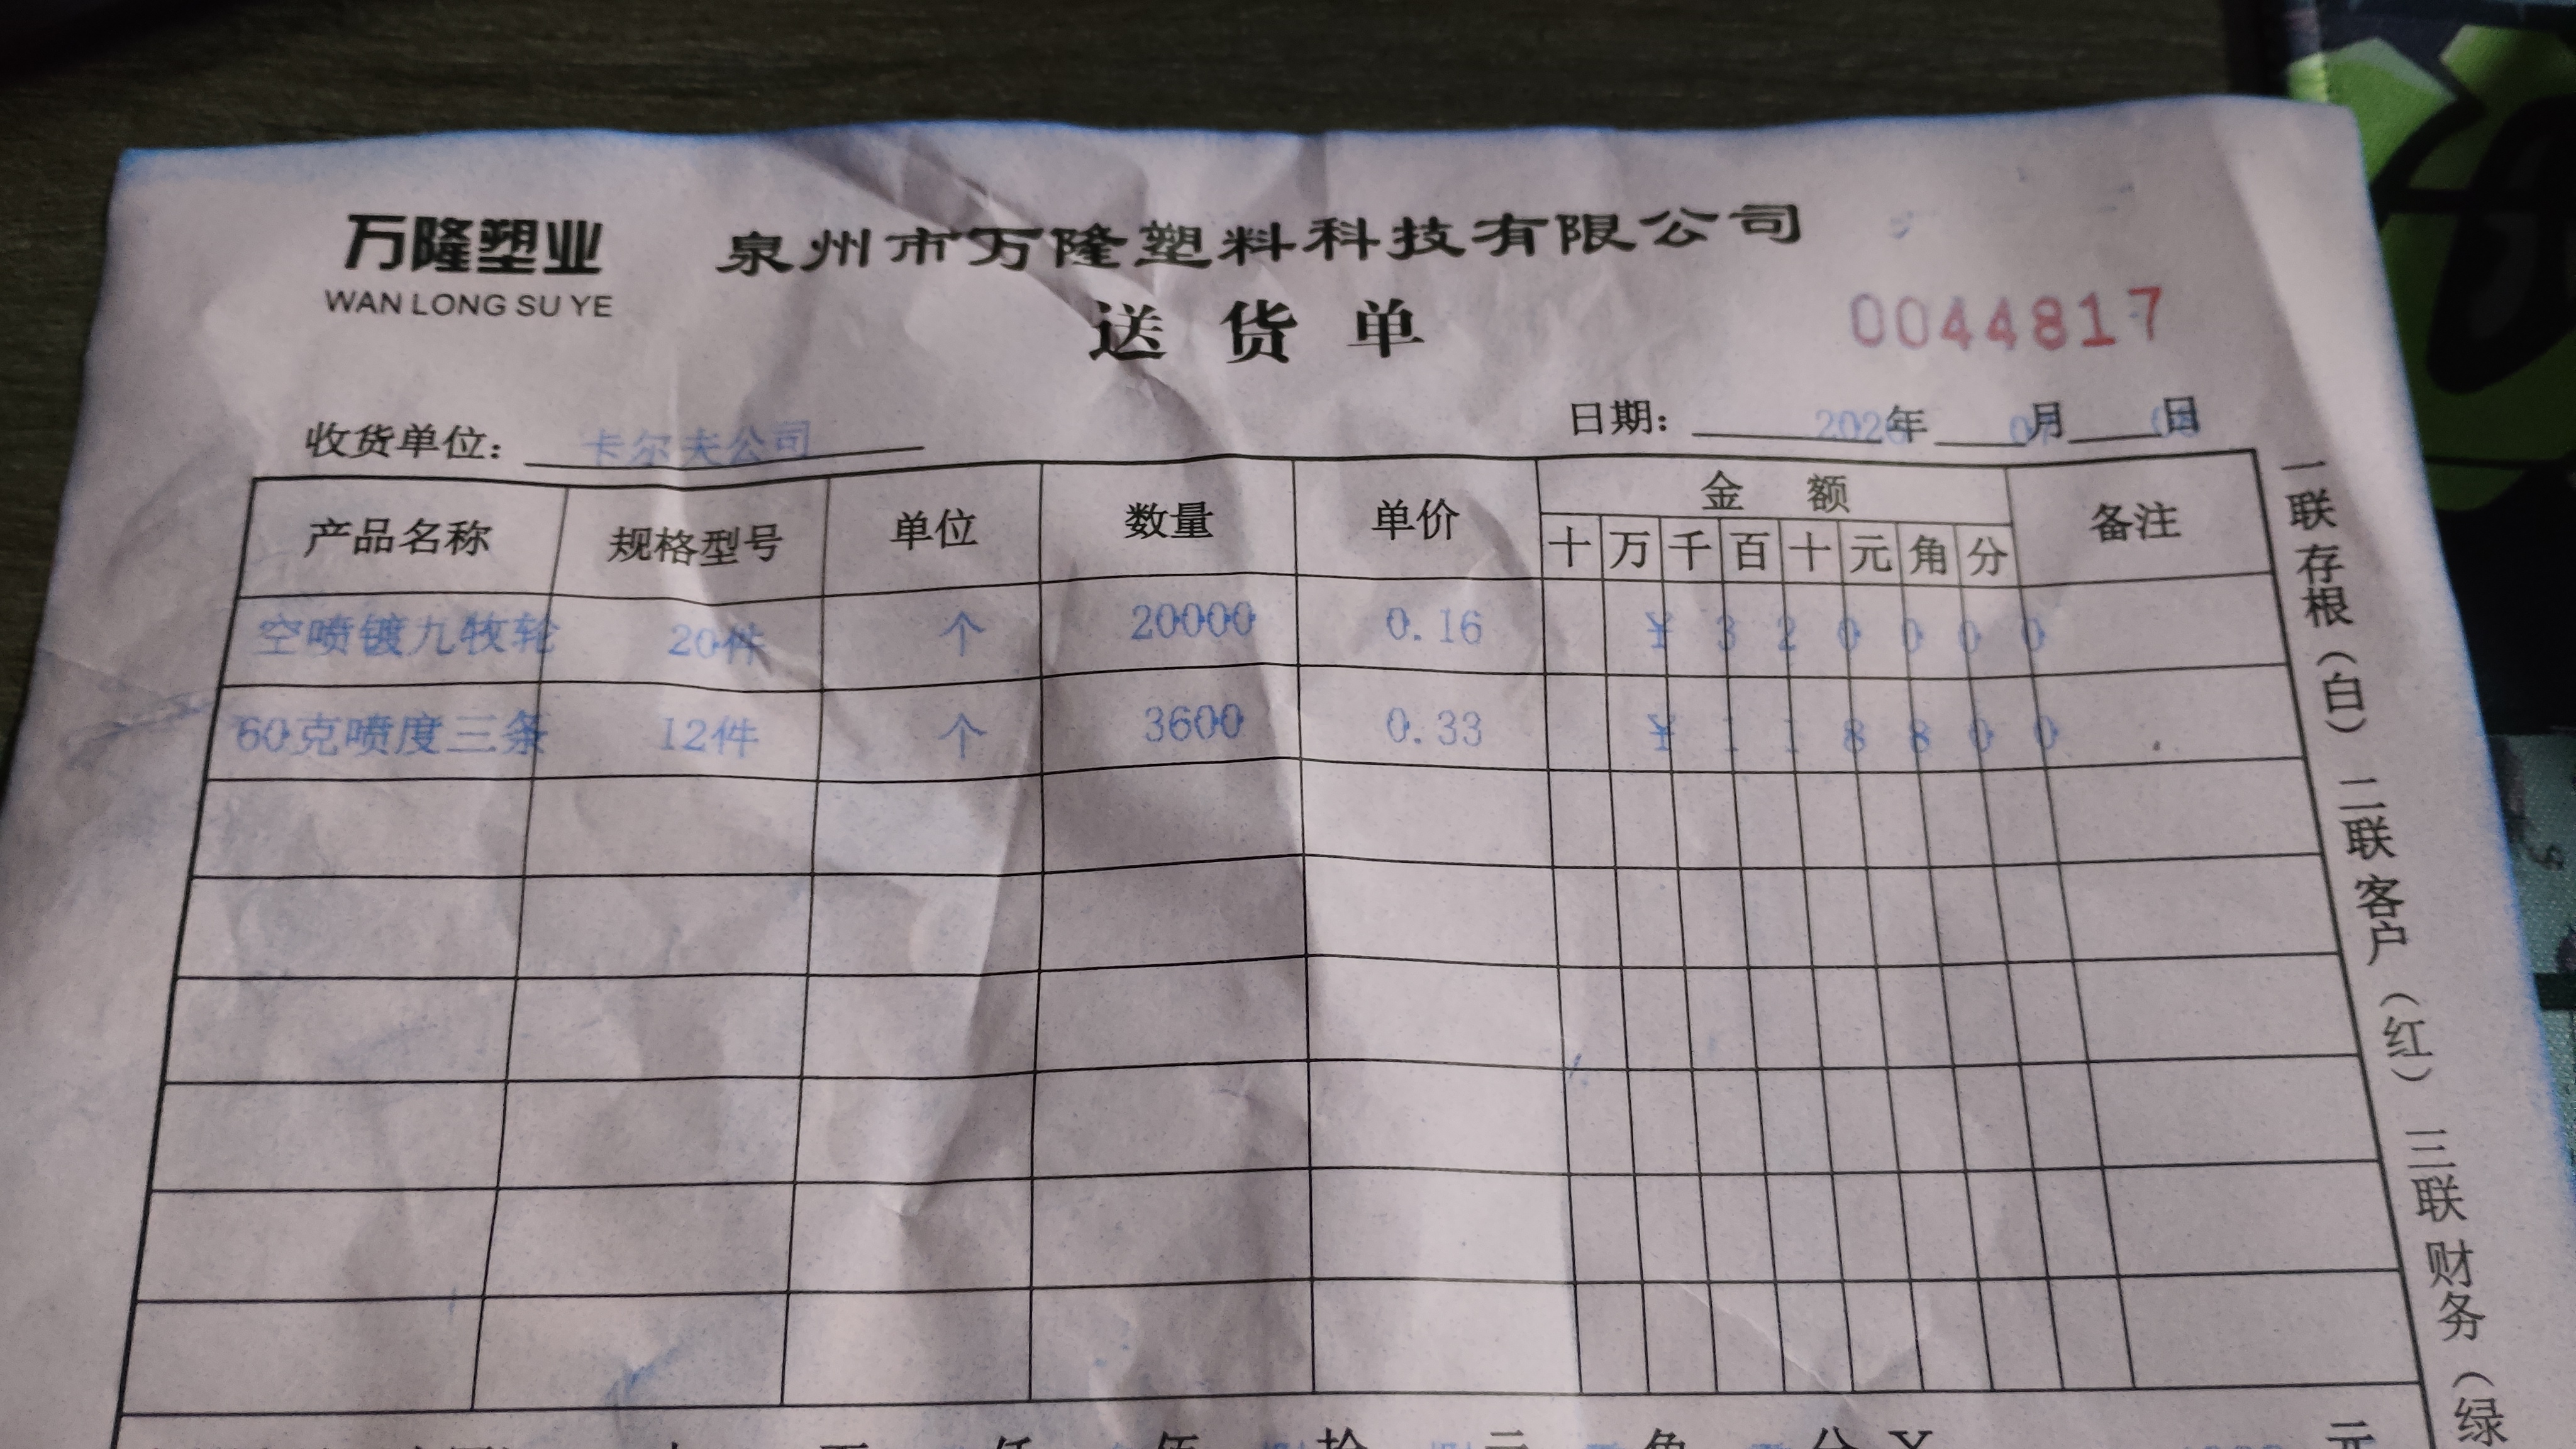 万隆塑业
WAN LONG SU YE
泉州市万隆塑料科技有限公司
送货单
0044817
收货单位： 卡尔夫公司
日期： 年 月 日
产品名称 规格型号 单位 数量 单价 金额 备注
十 万 千 百 十 元 角 分
空喷镀九牧轮 20件 个 20000 0.16 ¥ 3 2 0 0 0 0
60克喷度三条 12件 个 3600 0.33 ¥ 1 1 8 8 0 0
一联存根（白） 二联客户（红） 三联财务（绿